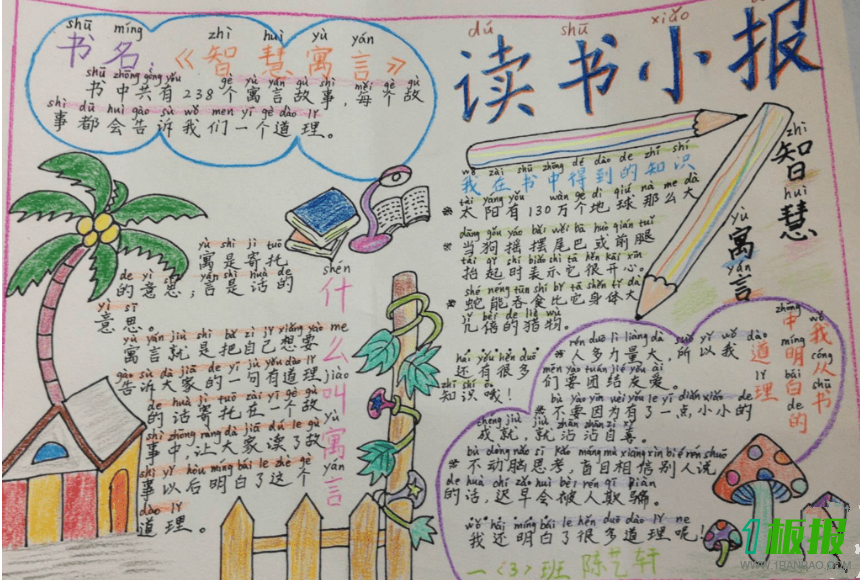 dú shū xiǎo
读书小报
shū míng zhì huì yù yán
书名《智慧寓言》
shū zhōng gòng yǒu gè yù yán gù shì měi gè gù
书中共有238个寓言故事,每个故
shì dū huì gào sù wǒ men yí gè dào lǐ
事都会告诉我们一个道理。
shén me jiào yù yán
什么叫寓言
yù shì jì tuō
寓是寄托
de yì si yán shì huà de
的意思;言是话的
yì sī
意思。
yù yán jiù shì bǎ zì jǐ xiǎng yào
寓言就是把自己想要
gào sù dà jiā de yí jù yǒu dào lǐ
告诉大家的一句有道理
de huà jì tuō zài yí gè gù
的话寄托在一个故
shì zhōng ràng dà jiā dú le gù
事中,让大家读了故
shì yǐ hòu míng bái le zhè gè
事以后明白了这个
dào lǐ
道理。
zhì huì yù yán
智慧寓言
wǒ zài shū zhōng dé dào de zhī shí
我在书中得到的知识
tài yáng yǒu wàn gè dì qiú nà me dà
※太阳有130万个地球那么大
dāng gǒu yáo bǎi wěi bā huò qián tuǐ
※当狗摇摆尾巴或前腿
tái qǐ shí biǎo shì tā hěn kāi xīn
抬起时表示它很开心。
shé néng tūn shí bǐ tā shēn tǐ dà
※蛇能吞食比它身体大
jǐ bèi de liè wù
几倍的猎物。
hái yǒu hěn duō
还有很多
zhī shi ó
知识哦!
wǒ cóng shū zhōng míng bái de dào lǐ
我从书中明白的道理
rén duō lì liàng dà suǒ yǐ wǒ
※人多力量大,所以我
men yào tuán jié yǒu ài
们要团结友爱。
bù yào yīn wèi yǒu le yì diǎn xiǎo de
※不要因为有了一点小小的
chéng jiù jiù zhān zhān zì xǐ
成就,就沾沾自喜。
bù dòng nǎo sī kǎo máng mù xiāng xìn bié rén shuō
※不动脑思考,盲目相信别人说
de huà chí zǎo huì bèi rén qī piàn
的话,迟早会被人欺骗。
wǒ hái míng bái le hěn duō dào lǐ ne
我还明白了很多道理呢!
一〈3〉班 陈艺轩
1板报
WWW.1BANBAO.COM